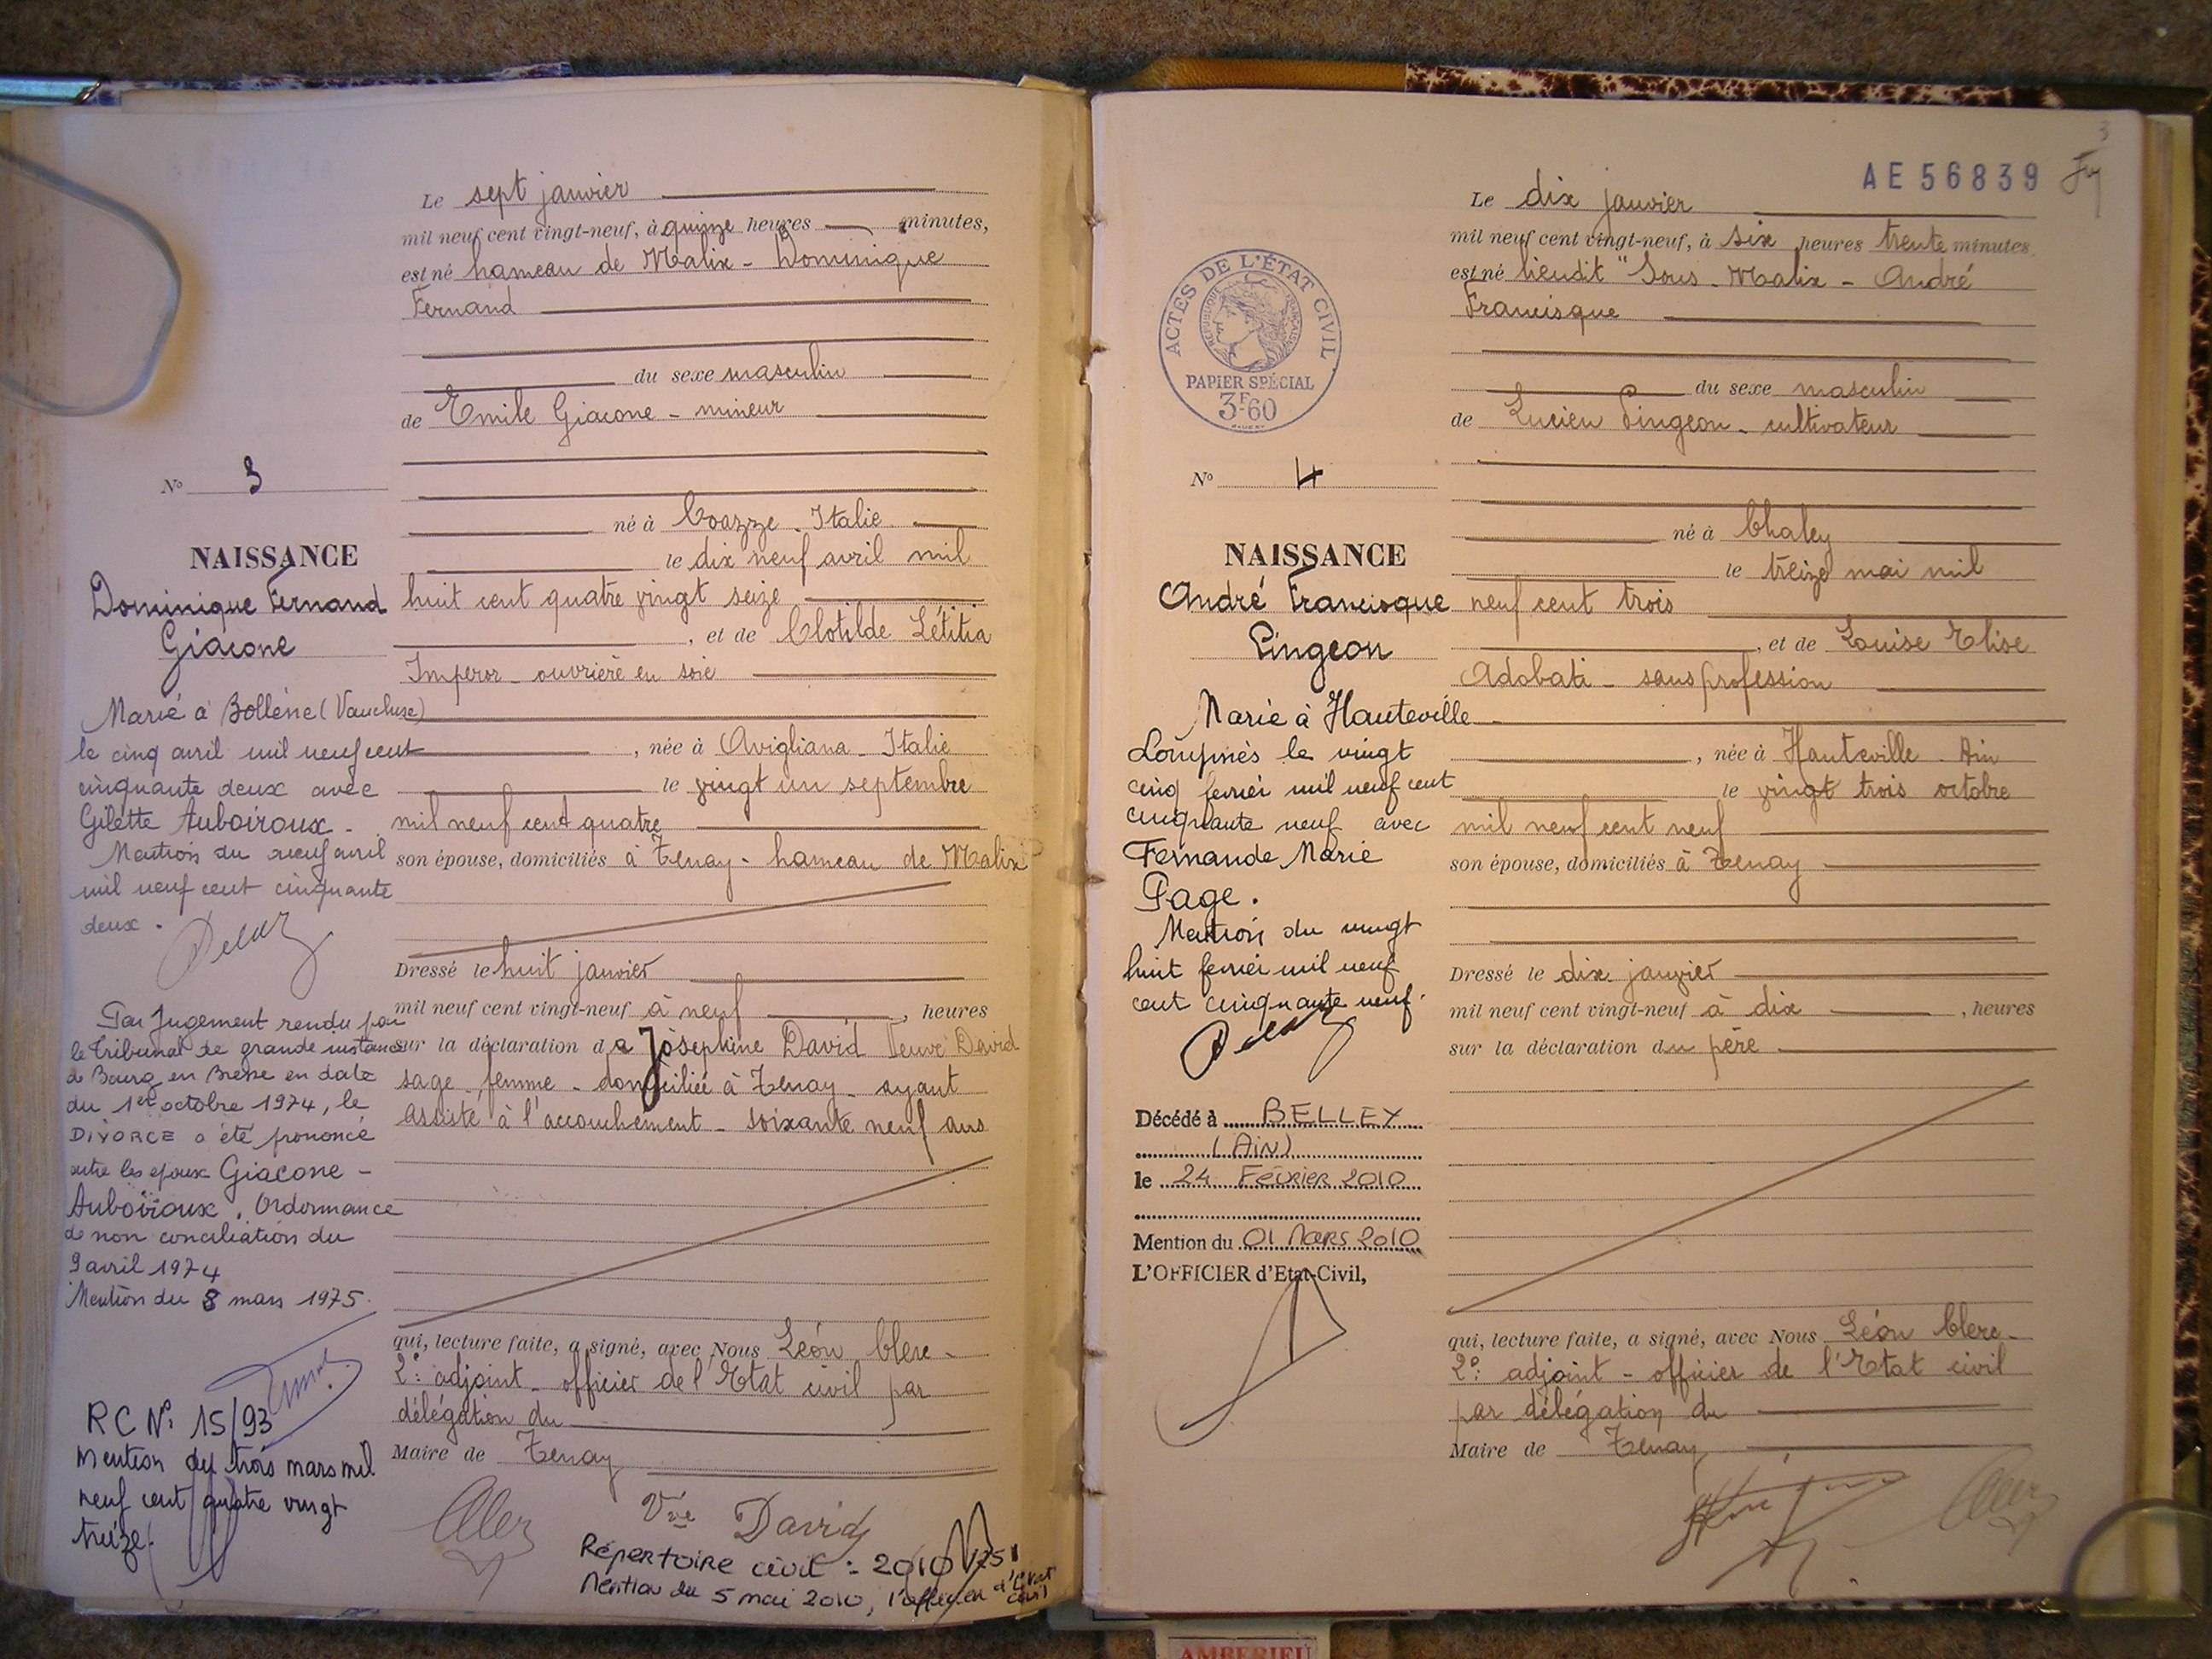 Le sept janvier
mil neuf cent vingt-neuf, à quinze heures minutes,
est né hameau de Malix - Dominique
Fernand
du sexe masculin
de Emile Giacone - mineur
né à Coazze - Italie
le dix neuf avril mil
huit cent quatre vingt seize
, et de Clotilde Létitia
Imperor - ouvrière en soie
, née à Avigliana - Italie
le vingt un septembre
mil neuf cent quatre
son épouse, domiciliés à Tenay - hameau de Malix
Dressé le huit janvier
mil neuf cent vingt-neuf à neuf , heures
sur la déclaration de Joséphine David Veuve David
sage femme - domiciliée à Tenay - ayant
assisté à l'accouchement - soixante neuf ans
qui, lecture faite, a signé, avec Nous Léon Clerc -
2e adjoint - officier de l'Etat civil par
délégation du
Maire de Tenay
Vve David
Répertoire civil : 2010
Mention du 5 mai 2010, l'officier d'Etat civil
N° 3
NAISSANCE
Dominique Fernand
Giacone
Marié à Bollène (Vaucluse)
le cinq avril mil neuf cent
cinquante deux avec
Gilette Auboiroux -
Mention du neuf avril
mil neuf cent cinquante
deux.
Par Jugement rendu par
le Tribunal de grande instance
de Bourg en Bresse en date
du 1er octobre 1974, le
DIVORCE a été prononcé
entre les epoux Giacone -
Auboiroux. Ordonnance
de non conciliation du
9 avril 1974
Mention du 8 mars 1975.
RC N°: 15/93
Mention du trois mars mil
neuf cent quatre vingt
treize.
3
AE 56839
Le dix janvier
mil neuf cent vingt-neuf, à six heures trente minutes
est né lieudit "Sous - Malix - André
Francisque
du sexe masculin
de Lucien Pingeon - cultivateur
né à Chaley
le treize mai mil
neuf cent trois
, et de Louise Elise
Adobati - sans profession
, née à Hauteville - Ain
le vingt trois octobre
mil neuf cent neuf
son épouse, domiciliés à Tenay
Dressé le dix janvier
mil neuf cent vingt-neuf à dix , heures
sur la déclaration du père
qui, lecture faite, a signé, avec Nous Léon Clerc -
2e adjoint - officier de l'Etat civil
par délégation du
Maire de Tenay
ACTES DE L'ÉTAT CIVIL
RÉPUBLIQUE FRANÇAISE
PAPIER SPÉCIAL
3F60
N° 4
NAISSANCE
André Francisque
Pingeon
Marié à Hauteville -
Lompnès le vingt
cinq fevrier mil neuf cent
cinquante neuf avec
Fernande Marie
Page.
Mention du vingt
huit fevrier mil neuf
cent cinquante neuf.
Décédé à BELLEY
(AIN)
le 24 FÉVRIER 2010
Mention du 01 MARS 2010
L'OFFICIER d'Etat-Civil,
AMBERIEU